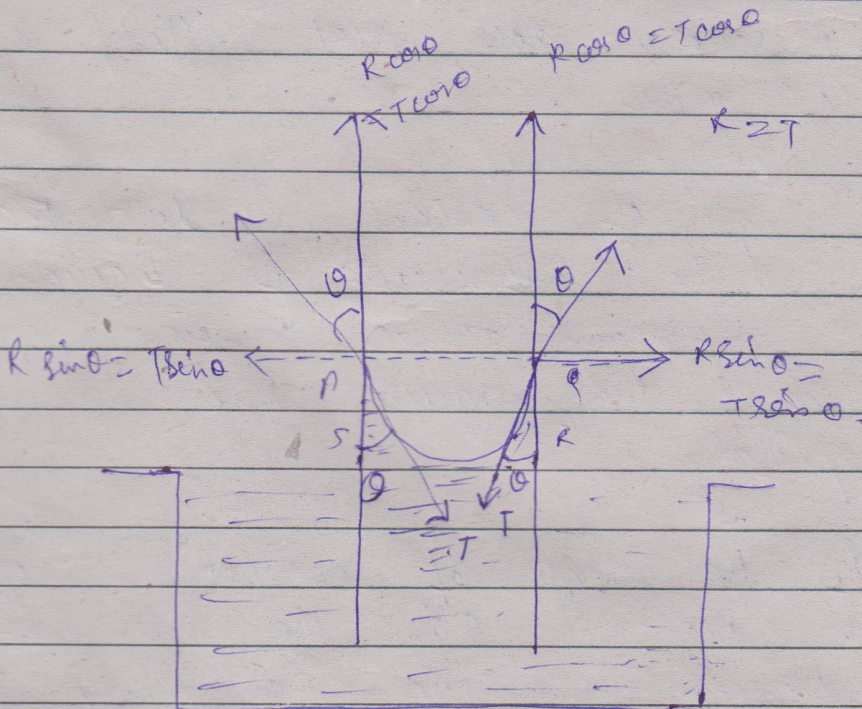 R cosθ
= T cosθ
R cosθ = T cosθ
R = T
θ
θ
R sinθ = T sinθ
R sinθ =
T sinθ
P
Q
S
R
θ
θ
T
T